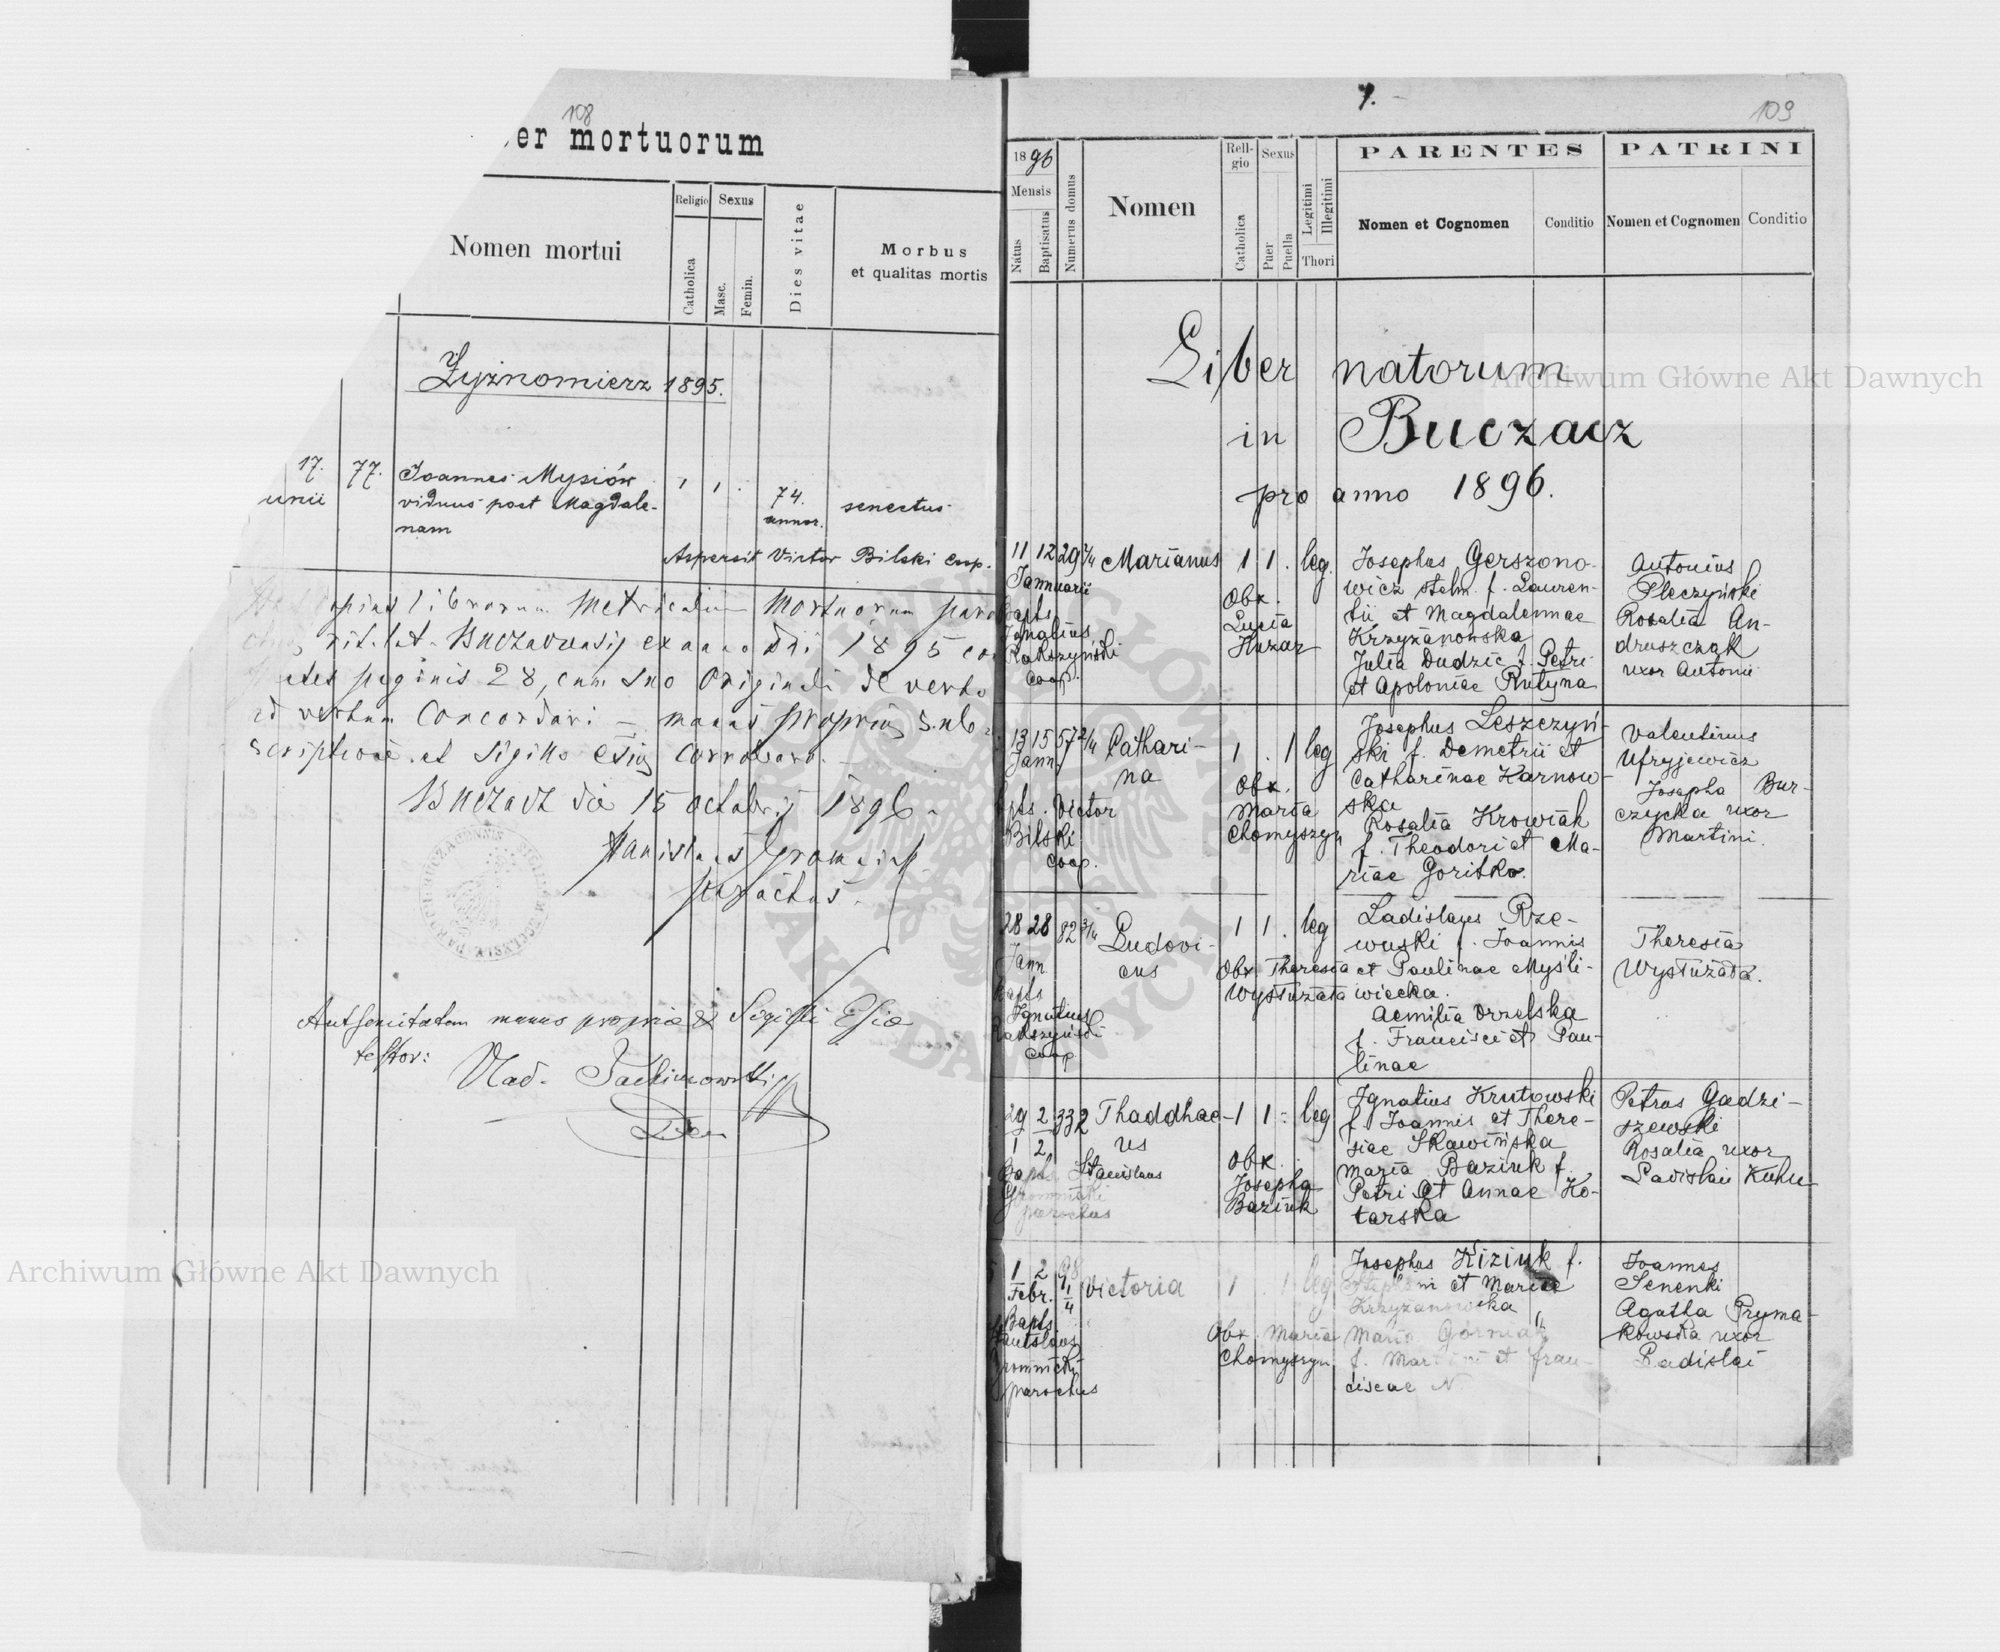 108
er mortuorum
Nomen mortui
Religio
Sexus
Catholica
Masc.
Femin.
Dies vitae
Morbus
et qualitas mortis
Zyznomierz 1895.
17.
unii
77.
Joannes Mysiów
viduus post Magdale-
nam
1 1 .
74.
annor.
senectus
Aspersit Victor Bilski Coop.
librorum Metricalium Mortuorum
rit. lat. Buczacensis ex anno Dni 1895
paginis 28, cum suo Originali de verbo
ad verbum Concordari – manus propria sub
scriptione et Sigillo corroboro.
Buczacz die 15 octobris 1896.
Stanislaus Gromnicki
parochus.
manus propria & Sigilli
testor:
Vlad.
7.
109
1896
Mensis
Natus
Baptisatus
Numerus domus
Nomen
Reli-
gio
Catholica
Sexus
Puer
Puella
Legitimi
Illegitimi
Thori
PARENTES
Nomen et Cognomen
Conditio
PATRINI
Nomen et Cognomen
Conditio
Liber natorum
in Buczacz
pro anno 1896.
11 12 29 Marianus 1 1 . leg.
Januarii
bapts
Ignatius
Rakszyński
Coop.
Obx.
Lucia
Huzar
Josephus Gerszono-
wicz stelm. f. Lauren-
tii et Magdalennae
Krzyzanowska
Julia Dudzic f. Petri
et Apoloniae Rutyna
Antonius
Pleczyński
Rosalia An-
druszczak
uxor Antonii
13 15 57 2/4 Cathari-
na
Jann.
1 . 1 leg
bpts. Victor
Bilski
Coop.
Obx.
Maria
Chomyszyn
Josephus Leszczyń-
ski f. Demetrii et
Catharinae Karnow-
ska
Rosalia Krowiak
f. Theodori et Ma-
riae Goritko.
Valentinus
Ufryjewicz
Josepha Bur-
czycka uxor
Martini.
28 28 82 3/4 Ludovi-
cus
Jann
1 1 . leg
bapts
Ignatius
Rakszyński
Coop
Obx Theresia
Wysturzata
Ladislaus Rze-
wuski f. Joannis
et Paulinae Myśli-
wiecka.
Aemilia Orzelska
f. Francisci et Pau-
linae
Theresia
29 2 332 Thaddhae-
us
1 2
1 1 . leg
Bapts. Stanislaus
Gromnicki
parochus
Obx.
Josepha
Baziuk
Ignatius Krutowski
f. Joannis et There-
siae Skawińska
Maria Baziuk f.
Petri et Annae Ko-
tarska
Petrus Gadzi-
szewski
Rosalia uxor
Ladislai Kuhn
1 2 Victoria 1 . 1 leg
Febr.
Bapts.
Stanislaus
Gromnicki
parochus
Obx. Maria
Chomyszyn
Josephus Kiziuk f.
et Mariae
Krzyzanowska
Maria Górniak
f. Martini et Fran-
ciscae N
Joannes
Senenki
Agatha Pryma-
kowska uxor
Ladislai
Archiwum Główne Akt Dawnych
Archiwum Główne Akt Dawnych